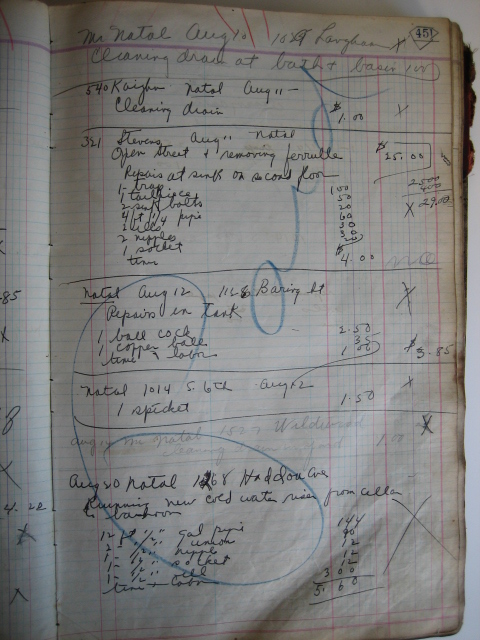 45
Mr Natal Aug 10
Cleaning drain at bath + basin 1 00
540 Kaighn Natal Aug 11 -
Cleaning drain $1.00
321 Stevens Aug 11 Natal
Open Street + removing ferrulle $25.00
Repairs at sink on second floor
1 - trap 1 00
1 tailpiece 50
2 sink bolts 20
4 ft 1 1/4 pipe 60
30
2 nipples 30
1 socket 20
time $4.00
25 00
4.00
29.00
Natal Aug 12 Baring St
Repairs in tank
1 ball cock 2.50
1 copper ball 35
time + labor 1 00
$3.85
Natal 1014 S. 6th Aug 12
1 spicket 1.50
Mr Natal 1527 Wildwood
1 00
Aug 20 Natal 1268 Haddon Ave
Running new cold water riser from cellar
to bathroom
12 ft 1/2" gal pipe 1 44
1/2" union 90
1/2" nipple 12
1/2" socket 12
1/2" ell 12
time + labor 3 00
5.60
3.85
4.22